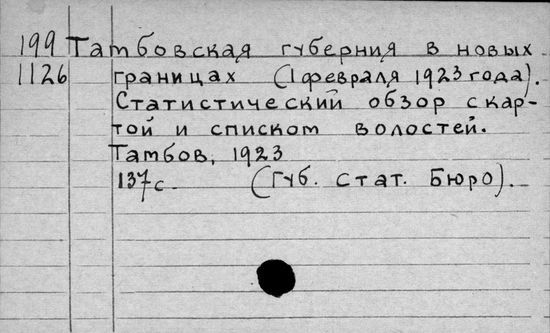 199 Тамбовская губерния в новых
1126 границах (1 февраля 1923 года).
Статистический обзор с кар-
той и списком волостей.
Тамбов, 1923
137 с. (Губ. стат. Бюро).